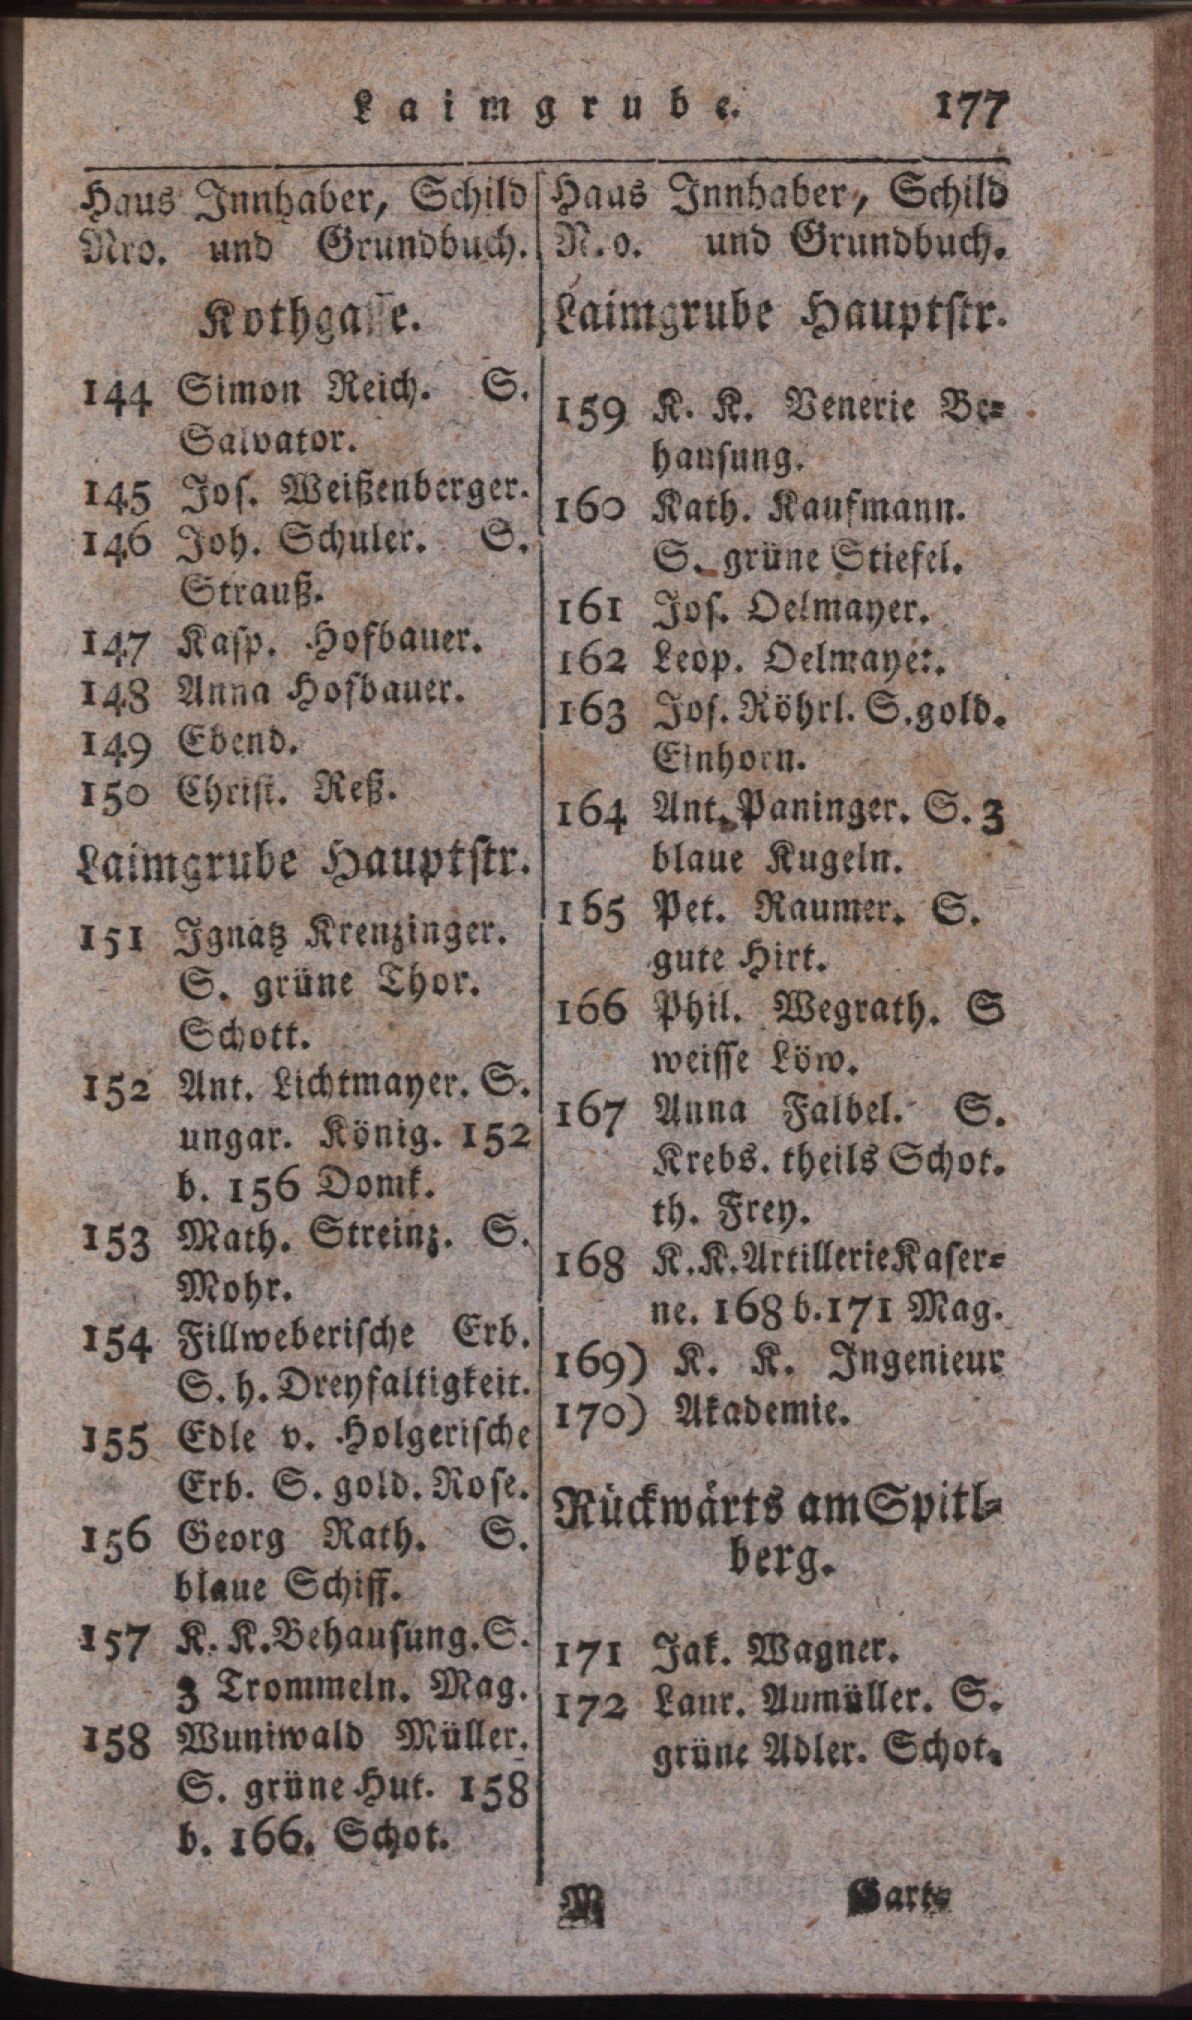 Laimgrube. 177
Haus Innhaber, Schild
Nro. und Grundbuch.
Kothgasse.
144 Simon Reich. S.
Salvator.
145 Jos. Weißenberger.
146 Joh. Schuler. S.
Strauß.
147 Kasp. Hofbauer.
148 Anna Hofbauer.
149 Ebend.
150 Christ. Reß.
Laimgrube Hauptstr.
151 Ignatz Krenzinger.
S. grüne Thor.
Schott.
152 Ant. Lichtmayer. S.
ungar. König. 152
b. 156 Domk.
153 Math. Streinz. S.
Mohr.
154 Fillweberische Erb.
S. h. Dreyfaltigkeit.
155 Edle v. Holgerische
Erb. S. gold. Rose.
156 Georg Rath. S.
blaue Schiff.
157 K. K. Behausung. S.
3 Trommeln. Mag.
158 Wuniwald Müller.
S. grüne Hut. 158
b. 166. Schot.
Haus Innhaber, Schild
Nro. und Grundbuch.
Laimgrube Hauptstr.
159 K. K. Venerie Be=
hausung.
160 Kath. Kaufmann.
S. grüne Stiefel.
161 Jos. Oelmayer.
162 Leop. Oelmayer.
163 Jos. Röhrl. S. gold.
Einhorn.
164 Ant. Paninger. S. 3
blaue Kugeln.
165 Pet. Raumer. S.
gute Hirt.
166 Phil. Wegrath. S
weisse Löw.
167 Anna Falbel. S.
Krebs. theils Schot.
th. Frey.
168 K. K. Artillerie Kaser=
ne. 168 b. 171 Mag.
169) K. K. Ingenieur
170) Akademie.
Rückwärts am Spitl=
berg.
171 Jak. Wagner.
172 Laur. Aumüller. S.
grüne Adler. Schot.
M Gart=